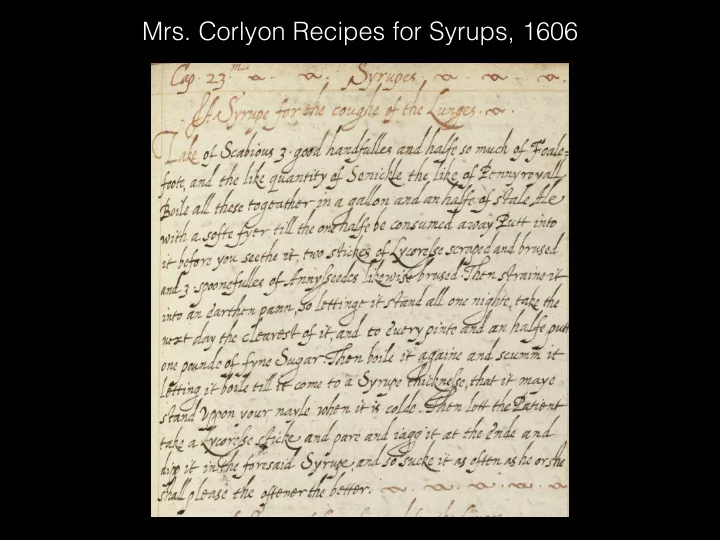 Mrs. Corlyon Recipes for Syrups, 1606
Cap. 23.m Syrupes
A Syrupe for the coughe of the Lunges.
Take of Scabious 3. good handfulles and halfe so much of Foale=
foote, and the like quantity of Senickle the like of Pennyroyall
Boile all these togeather in a gallon and an halfe of stale Ale
with a softe fyer till the one halfe be consumed away Putt into
it before you seethe it, two stickes of Lycoresse scraped and brused
and 3. spoonefulles of Annysseedes likewise brused. Then straine it
into an earthen pann, so lettinge it stand all one nighte, take the
next day the clearest of it, and to every pinte and an halfe putt
one pounde of fyne Sugar. Then boile it againe and scumm it
letting it boile till it come to a Syrupe thicknesse, that it maye
stand uppon your nayle when it is colde. Then lett the Patient
take a Lycoresse sticke and pare and iagg it at the ende and
dipp it in the foresaid Syrupe, and so sucke it as often as he or she
shall please the oftener the better.